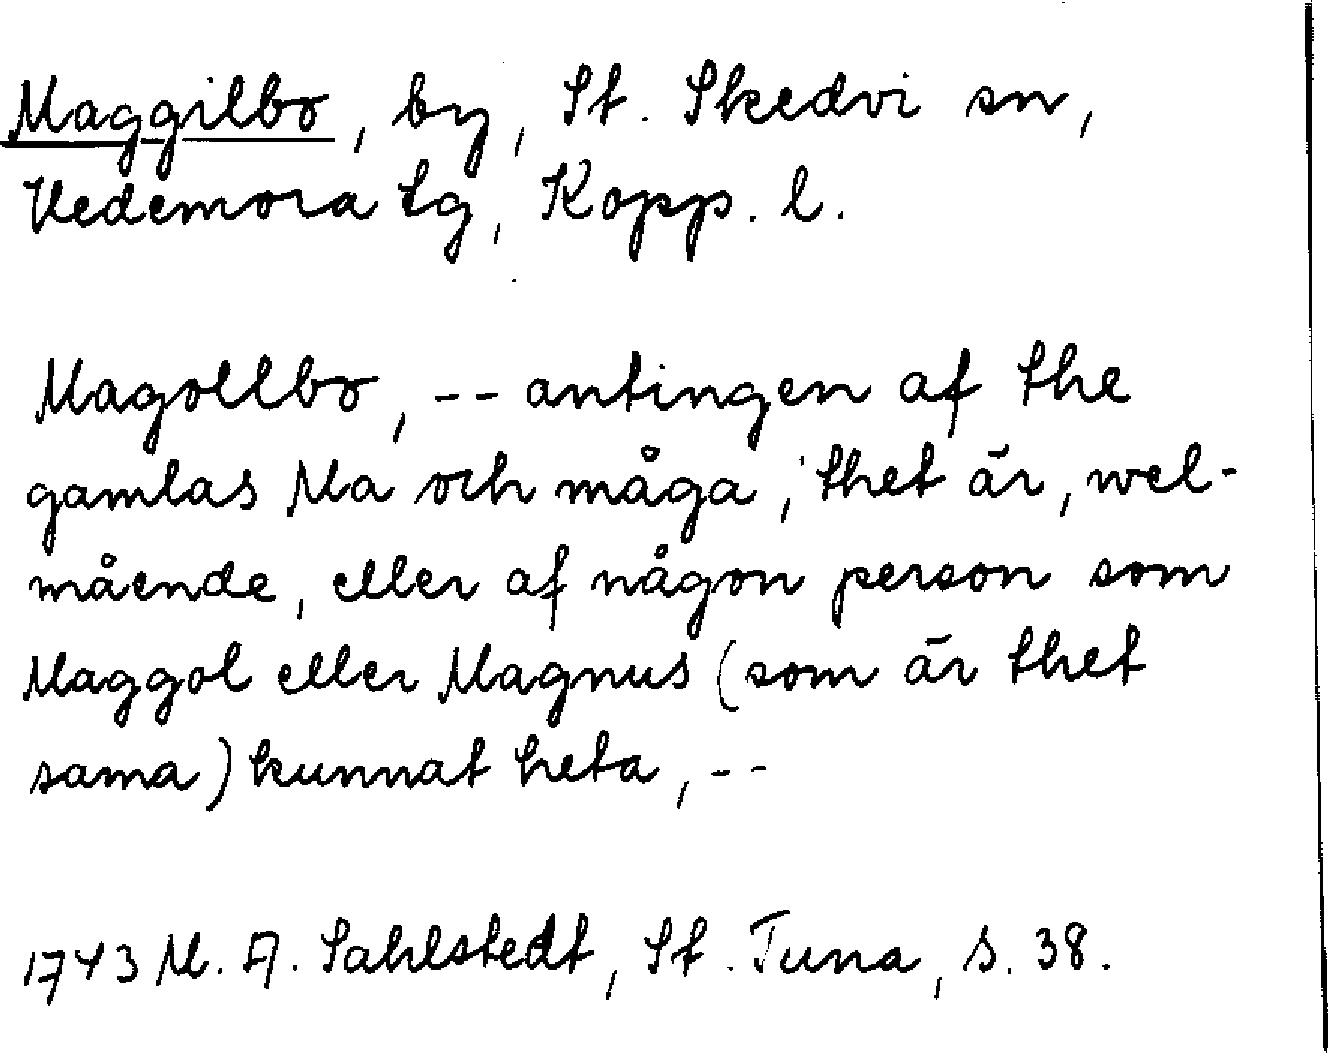 Maggilbo, by, St. Skedvi sn,
Hedemora tg, Kopp. l.
Magollbo, -- antingen af the
gamlas Ma och måga, thet är, wel-
mående, eller af någon person som
Maggol eller Magnus (som är thet
sama) kunnat heta, --
1743 M. A. Sahlstedt, St. Tuna, s. 38.